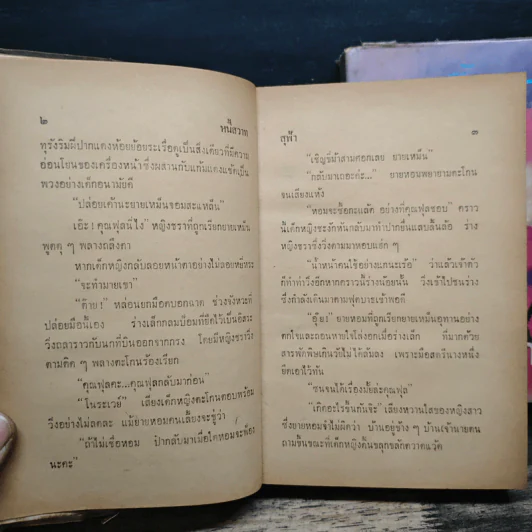 ๒ หนี้สวาท
ทุรังริมฝีปากแดงห้อยย้อยระเรื่อดูเป็นสิ่งเดียวที่มีความ
อ่อนโยนของเครื่องหน้า ซึ่งผสานกับแก้มแดงแช้ดเป็น
พวงอย่างเด็กอนามัยดี
"ปล่อยเค้านะยายเหมืนจอมสะแหลึน"
เอ๊ะ! คุณฟุลนี่ไง" หญิงชราที่ถูกเรียกยายเหมืน
พูดดุ ๆ พลางถลึงตา
หากเด็กหญิงกลับลอยหน้าตาอย่างไม่ลดหย่อน
"จะทำมายเขา"
"ต๊าย! " หล่อนยกมือตบอกฉาด ช่วงจังหวะที่
ปล่อยมือนี้เอง ร่างเด็กกลมป้อมที่ยึดไว้เป็นอิสระ
วิ่งถลาราวกับนกที่บินออกจากกรง โดยมีหญิงชราวิ่ง
ตามติด ๆ พลางตะโกนร้องเรียก
"คุณฟุลคะ...คุณฟุลกลับมาก่อน"
"โนระเวย์" เสียงเด็กหญิงตะโกนตอบพร้อม
วิ่งอย่างไม่ลดละ แม้ยายหอมคนเลี้ยงจะขู่ว่า
"ถ้าไม่เชื่อหอม ป้ากลับมาเมื่อใดหอมจะฟ้อง
นะคะ"
สุฟ้า ๓
"เชิญขี่ม้าสามศอกเลย ยายเหมืน"
"กลับมาเถอะค่ะ..." ยายหอมพยายามตะโกน
จนเสียงแห้ง
"หอมจะซื้อกะแล้ต อย่างที่คุณฟุลชอบ" คราว
นี้เด็กหญิงชะงักหันกลับมาทำปากยื่นแลบลิ้นล้อ ร่าง
หญิงชราซึ่งวิ่งตามมาหอบแฮ่ก ๆ
"น้ำหน้าคนใช้อย่างแกนะเร้อ" ว่าแล้วเจ้าตัว
ก็ทำท่าวิ่งอีกหากคราวนี้ร่างน้อยนั้น วิ่งเข้าไปชนร่าง
ซึ่งกำลังเดินมาตามฟุตบาธเข้าพอดี
"อุ๊ย! " ยายหอมที่ถูกเรียกยายเหมืนอุทานอย่าง
ตกใจและถอนหายใจโล่งอกเมื่อร่างเล็ก ที่มาดด้วย
สารพัดพิษเดินวีซ่าไม่ได้ล้มลง เพราะมือสตรีนางหนึ่ง
ยึดเอาไว้ทัน
"ซนจนได้เรื่องมั้ยล่ะคุณฟุล"
"เกิดอะไรขึ้นกันจ๊ะ" เสียงหวานใสของหญิงสาว
ซึ่งยายหอมจำไม่ผิดว่า บ้านอยู่ข้าง ๆ บ้านเจ้านายตน
ถามขึ้นขณะที่เด็กหญิงดิ้นขลุกขลักควาดแว้ด